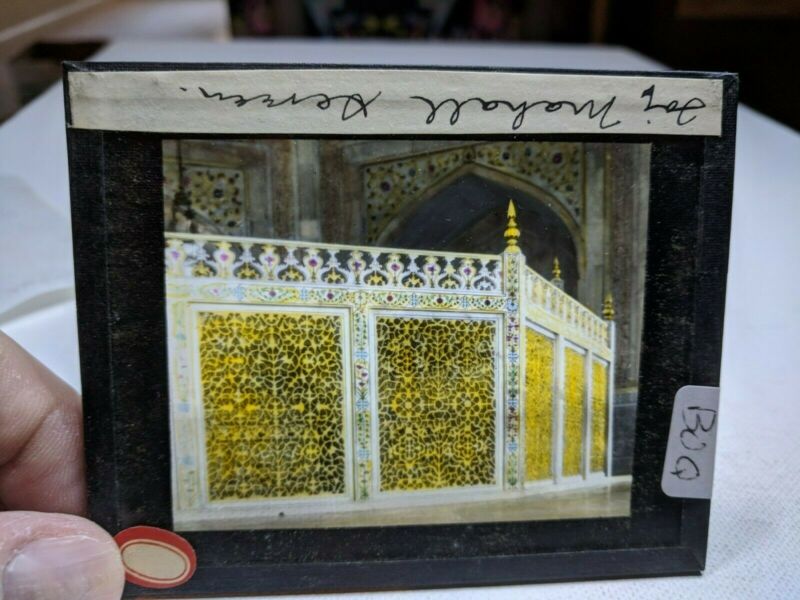 Taj Mahall Screen.
BOQ